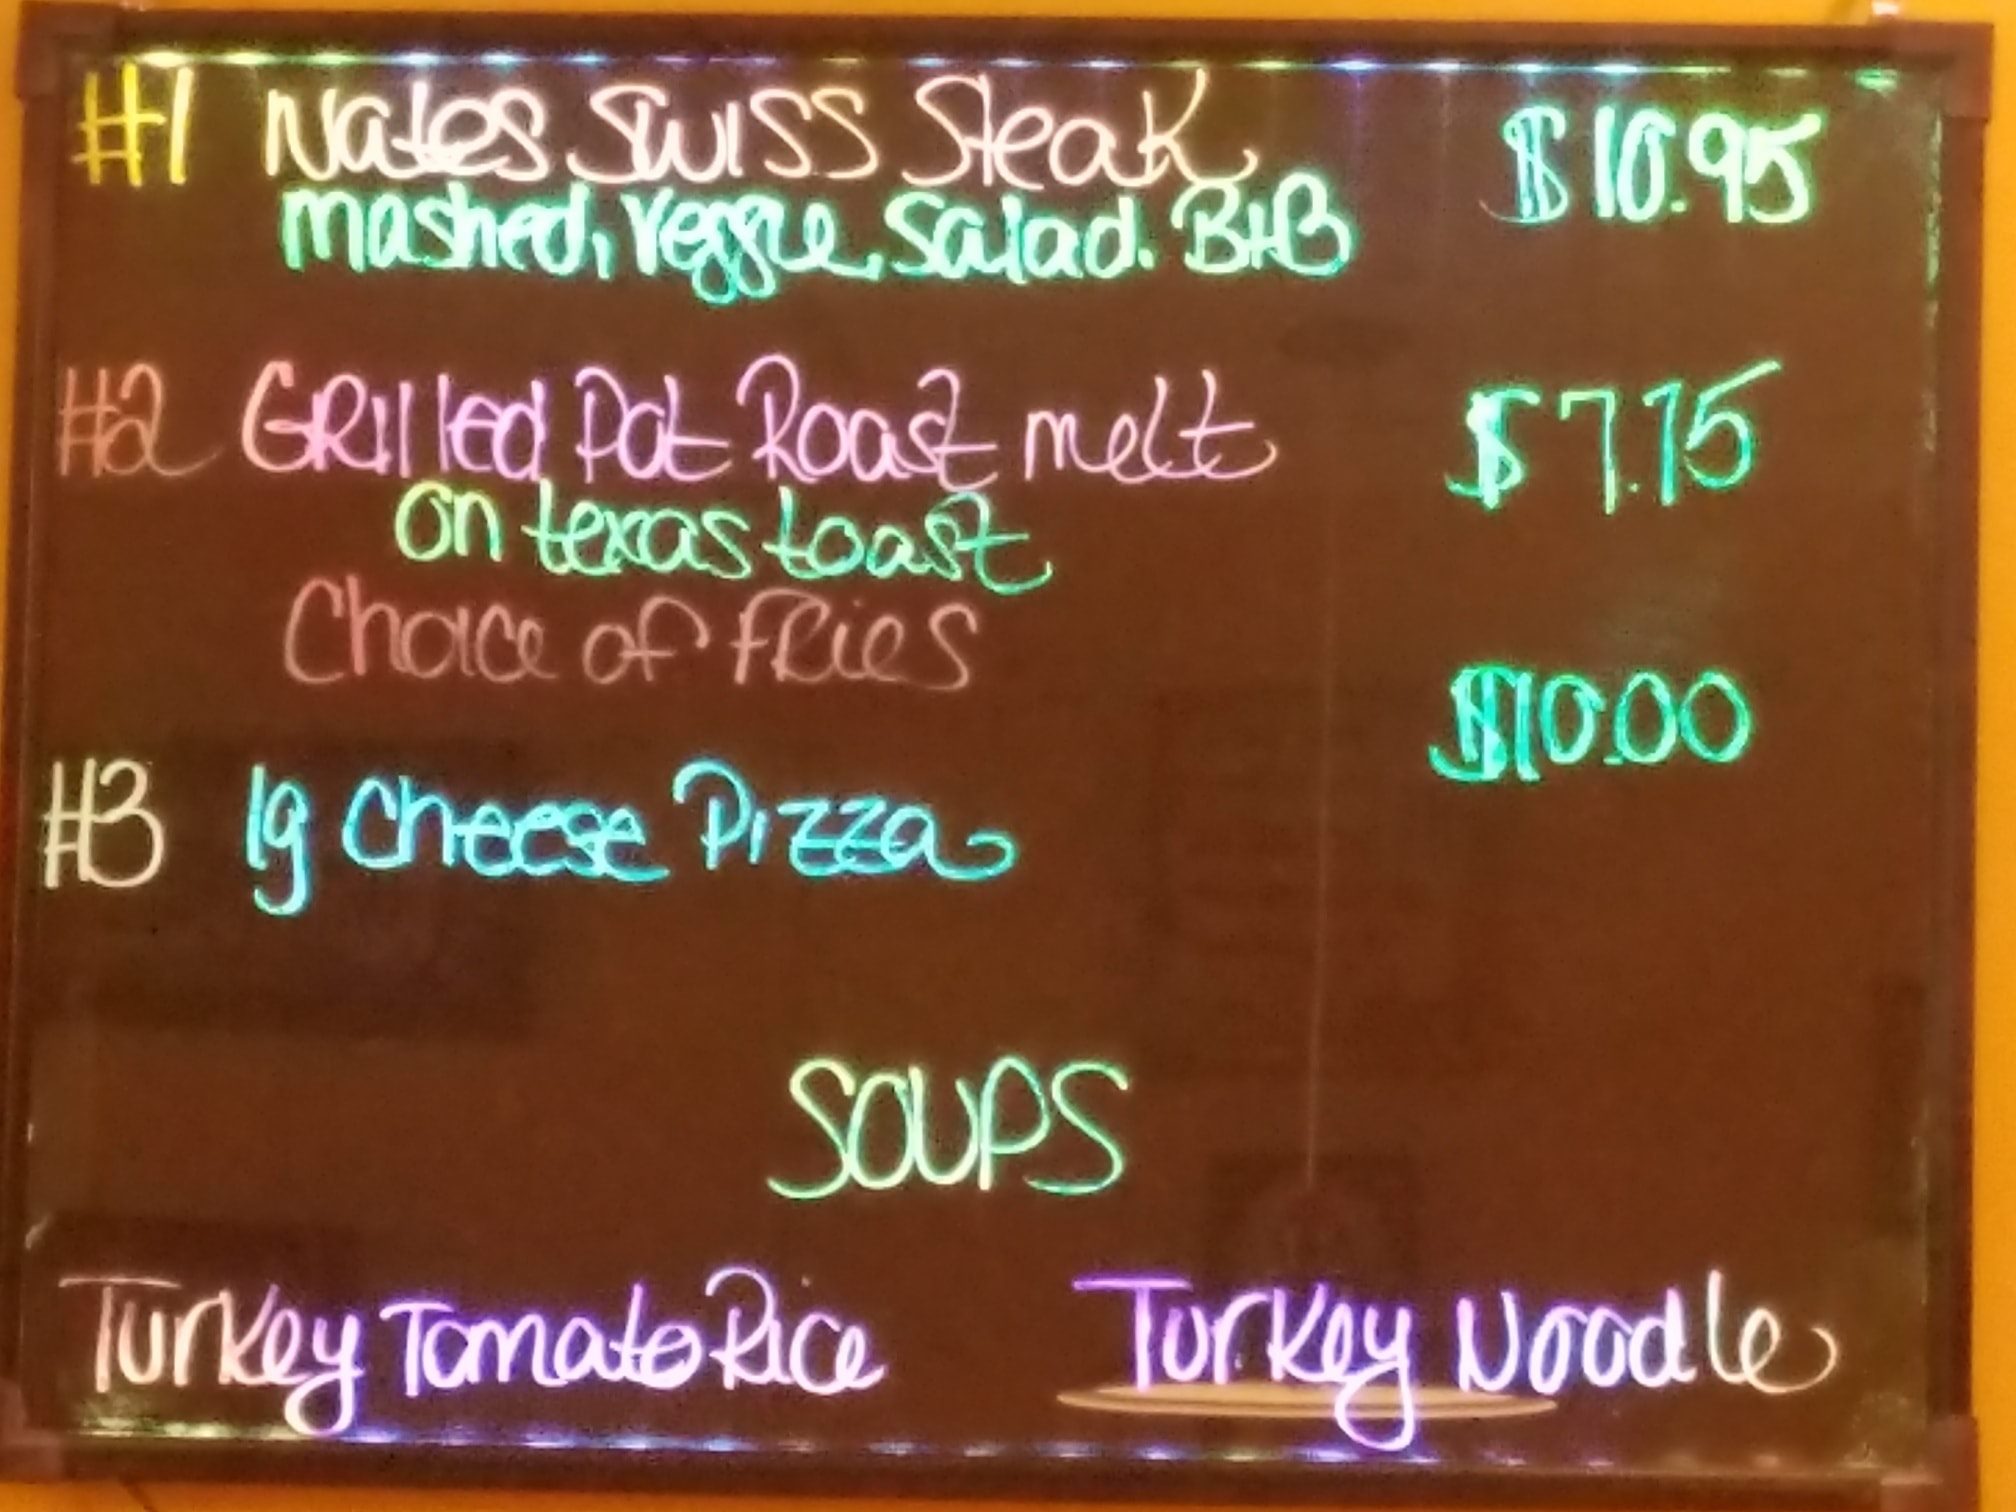 #1 Nates Swiss Steak $10.95
mashed, Veggie, Salad. B+B
#2 GRilled Pot Roast melt $7.75
on texas toast
Choice of FRies
$10.00
#3 lg Cheese Pizza
SOUPS
Turkey Tomato Rice Turkey Noodle